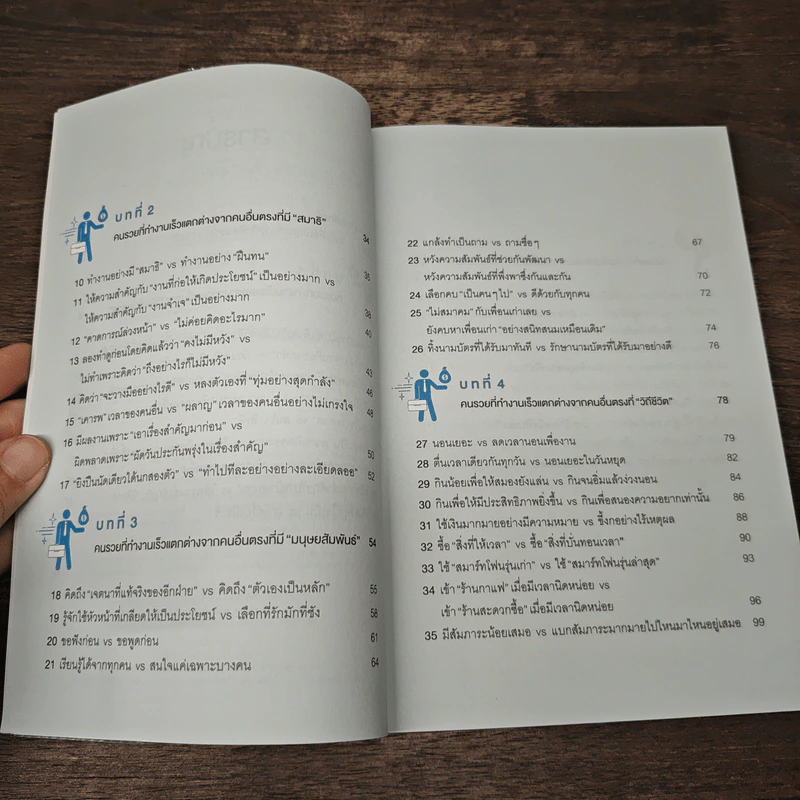 บทที่ 2
คนรวยที่ทำงานเร็วแตกต่างจากคนอื่นตรงที่มี "สมาธิ" 34
10 ทำงานอย่างมี "สมาธิ" vs ทำงานอย่าง "ฝืนทน" 36
11 ให้ความสำคัญกับ "งานที่ก่อให้เกิดประโยชน์" เป็นอย่างมาก vs
ให้ความสำคัญกับ "งานจำเจ" เป็นอย่างมาก 38
12 "คาดการณ์ล่วงหน้า" vs "ไม่ค่อยคิดอะไรมาก" 40
13 ลองทำดูก่อนโดยคิดแล้วว่า "คงไม่มีหวัง" vs
ไม่ทำเพราะคิดว่า "ถึงอย่างไรก็ไม่มีหวัง" 43
14 คิดว่า "จะวางมืออย่างไรดี" vs หลงตัวเองที่ "ทุ่มอย่างสุดกำลัง" 46
15 "เคารพ" เวลาของคนอื่น vs "ผลาญ" เวลาของคนอื่นอย่างไม่เกรงใจ 48
16 มีผลงานเพราะ "เอาเรื่องสำคัญมาก่อน" vs
ผิดพลาดเพราะ "ผัดวันประกันพรุ่งในเรื่องสำคัญ" 50
17 "ยิงปืนนัดเดียวได้นกสองตัว" vs "ทำไปทีละอย่างอย่างละเอียดลออ" 52
บทที่ 3
คนรวยที่ทำงานเร็วแตกต่างจากคนอื่นตรงที่มี "มนุษยสัมพันธ์" 54
18 คิดถึง "เจตนาที่แท้จริงของอีกฝ่าย" vs คิดถึง "ตัวเองเป็นหลัก" 55
19 รู้จักใช้หัวหน้าที่เกลียดให้เป็นประโยชน์ vs เลือกที่รักมักที่ชัง 58
20 ขอฟังก่อน vs ขอพูดก่อน 61
21 เรียนรู้ได้จากทุกคน vs สนใจแค่เฉพาะบางคน 64
22 แกล้งทำเป็นถาม vs ถามซื่อๆ 67
23 หวังความสัมพันธ์ที่ช่วยกันพัฒนา vs
หวังความสัมพันธ์ที่พึ่งพาซึ่งกันและกัน 70
24 เลือกคบ "เป็นคนๆ ไป" vs ดีด้วยกับทุกคน 72
25 "ไม่สมาคม" กับเพื่อนเก่าเลย vs
ยังคบหาเพื่อนเก่า "อย่างสนิทสนมเหมือนเดิม" 74
26 ทิ้งนามบัตรที่ได้รับมาทันที vs รักษานามบัตรที่ได้รับมาอย่างดี 76
บทที่ 4
คนรวยที่ทำงานเร็วแตกต่างจากคนอื่นตรงที่ "วิถีชีวิต" 78
27 นอนเยอะ vs ลดเวลานอนเพื่องาน 79
28 ตื่นเวลาเดียวกันทุกวัน vs นอนเยอะในวันหยุด 82
29 กินน้อยเพื่อให้สมองยังแล่น vs กินจนอิ่มแล้วง่วงนอน 84
30 กินเพื่อให้มีประสิทธิภาพยิ่งขึ้น vs กินเพื่อสนองความอยากเท่านั้น 86
31 ใช้เงินมากมายอย่างมีความหมาย vs ขี้งกอย่างไร้เหตุผล 88
32 ซื้อ "สิ่งที่ให้เวลา" vs ซื้อ "สิ่งที่บั่นทอนเวลา" 90
33 ใช้ "สมาร์ทโฟนรุ่นเก่า" vs ใช้ "สมาร์ทโฟนรุ่นล่าสุด" 93
34 เข้า "ร้านกาแฟ" เมื่อมีเวลานิดหน่อย vs
เข้า "ร้านสะดวกซื้อ" เมื่อมีเวลานิดหน่อย 96
35 มีสัมภาระน้อยเสมอ vs แบกสัมภาระมากมายไปไหนมาไหนอยู่เสมอ 99